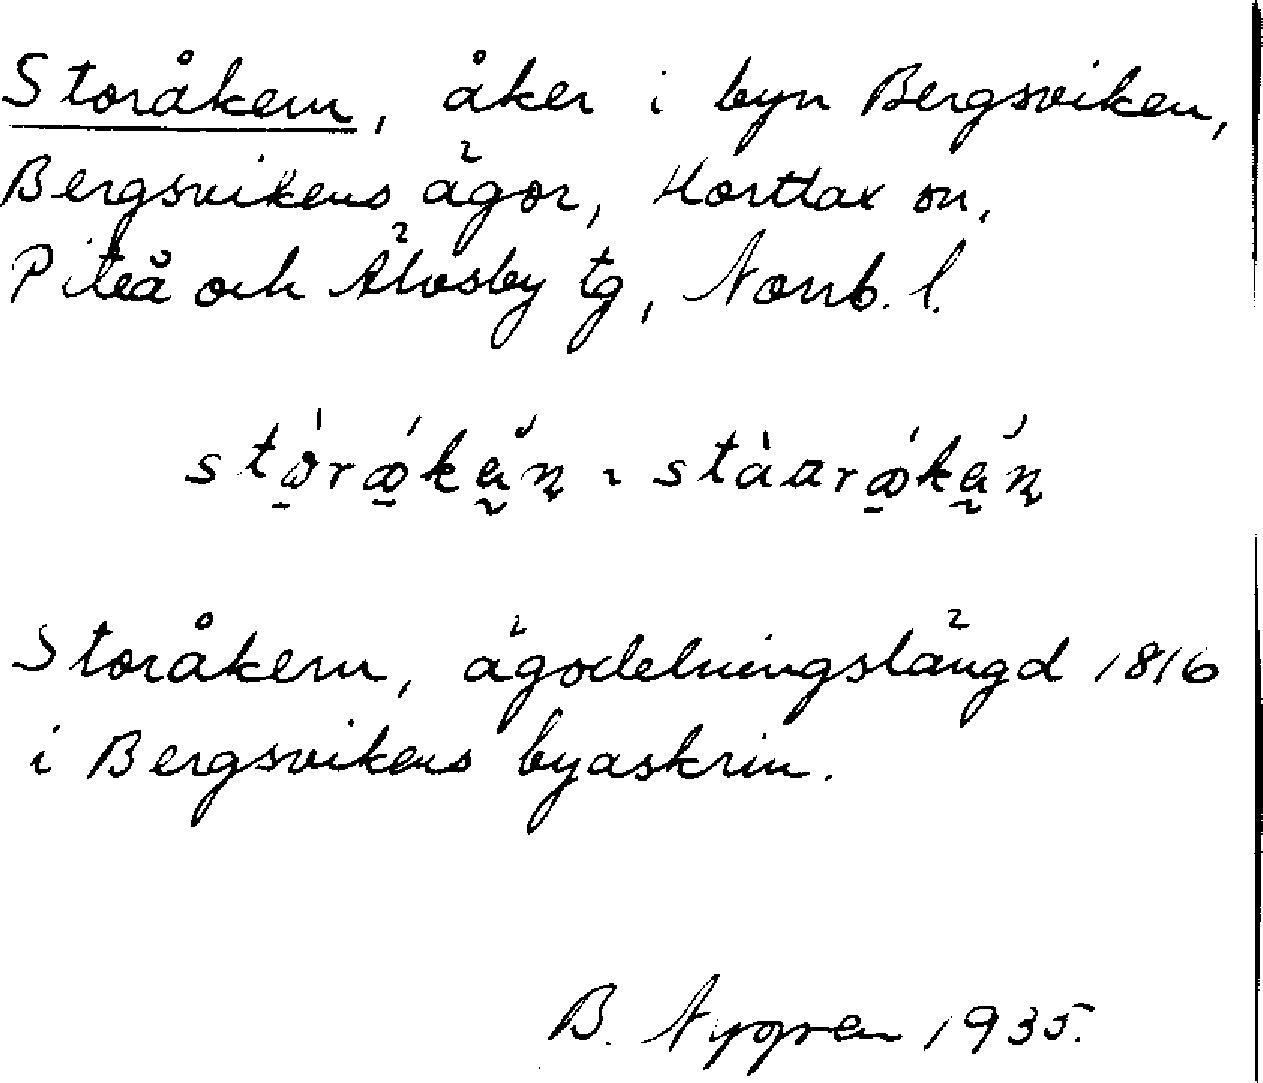 Storåkern, åker i byn Bergsviken,
Bergsvikens ägor, Hortlax sn,
Piteå och Älvsby tg, Norrb. l.
Storåkern, ägodelningslängd 1816
i Bergsvikens byaskrin.
B. Nygren 1935.